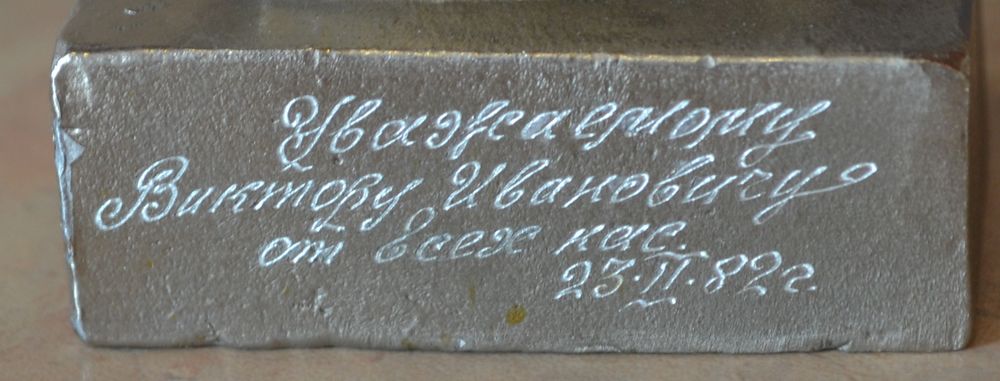 Уважаемому
Виктору Ивановичу
от всех нас.
23·II·82г.